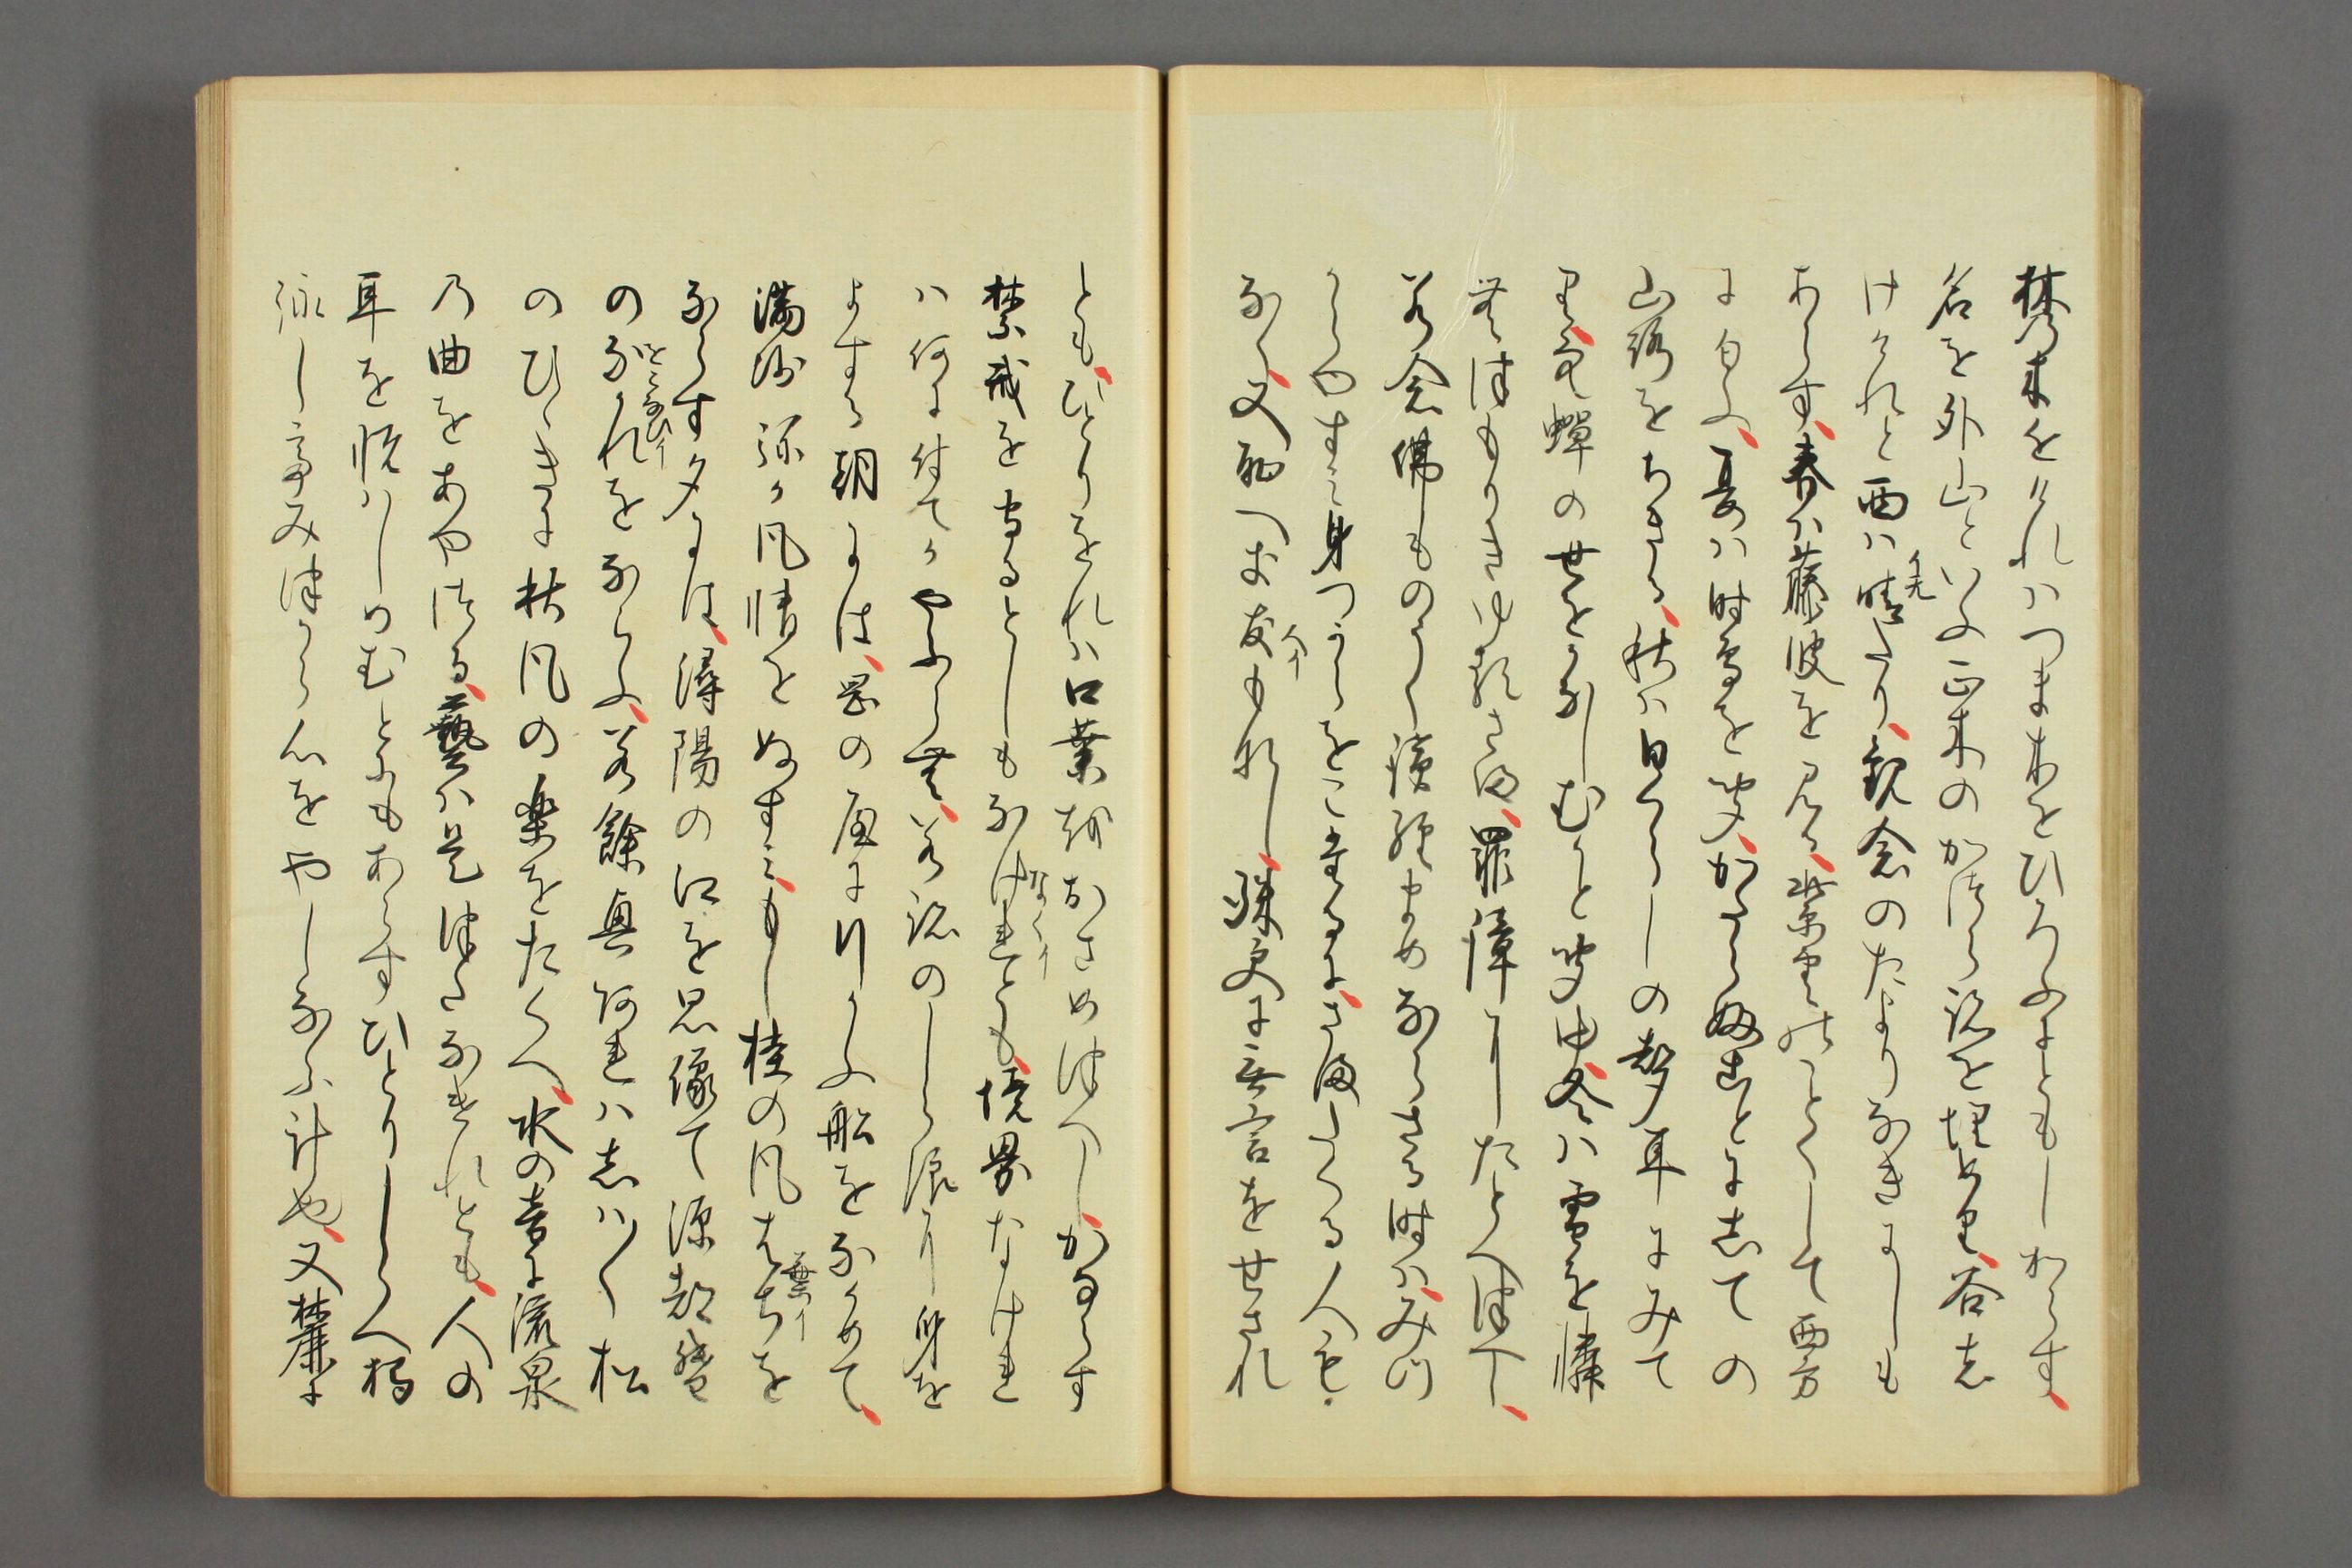 林乃木をけれハつま木をひろふにともしからす
名を外山といふ正木のかつら跡を埋めり谷志
けけれと西ハ晴たり観念のたよりなきにしも
あらす春ハ藤波を見る紫雲のことくして西方
に匂ふ夏ハ時鳥を聞かたらふことに志ての
山路をちきる秋ハ日くらしの聲耳にみて
り空蝉の世をかなしむかと聞ゆ冬ハ雪を憐
む津もりきゆるさま罪障にたとへ津へし
若念佛ものうく読経まめならさる時ハみつ
からやすみ身つからをこたるにさまたくる人も
なく又恥へき友もなし殊更に無言をせされ
ともひとりをれハ口業をおさめ津へしかならす
禁戒を守るとしもなけれとも境界なけれ
ハ何に付てかやふらむ若跡のしら浪に身を
よする朝には岡の屋に行かふ船をなかめて
満沙弥か風情をぬすみもし桂の風はちを
ならす夕には潯陽の江を思像て源都督
のなかれをならふ若餘興あれハ志ハ〱松
のひゝきに秋風の楽をたくへ水の音に流泉
乃曲をあやつる藝ハ是津たなけれとも人の
耳を悦ハしめむとにもあらすひとりしらへ獨
詠し亭み津から心をやしなふ計也又麓に